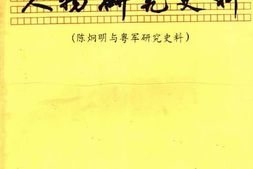 人物研究史料
(陈炯明与粤军研究史料)